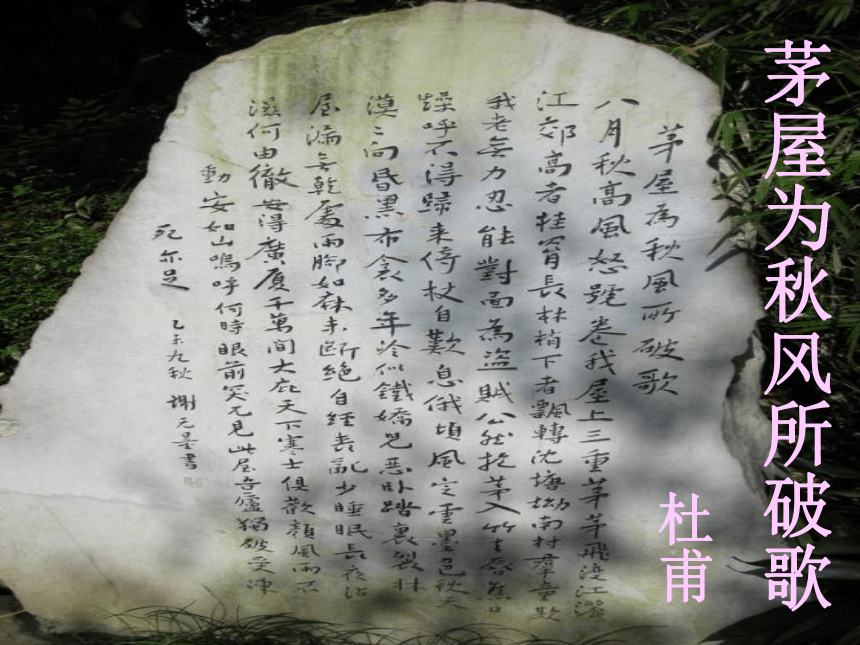 茅屋为秋风所破歌
杜甫
茅屋為秋風所破歌
八月秋高風怒號卷我屋上三重茅茅飛渡江灑
江郊高者挂罥長林梢下者飄轉沈塘坳南村群童欺
我老無力忍能對面為盜賊公然抱茅入竹去唇焦口
燥呼不得歸来倚杖自歎息俄頃風定雲墨色秋天
漠〻向昏黑布衾多年冷似鐵嬌兒惡卧踏裏裂牀
屋漏無乾處雨腳如麻未斷絕自經喪亂少睡眠長夜沾
濕何由徹安得廣厦千萬間大庇天下寒士俱歡顏風雨不
動安如山嗚呼何時眼前突兀見此屋吾廬獨破受凍
死亦足 乙未九秋 謝无量書